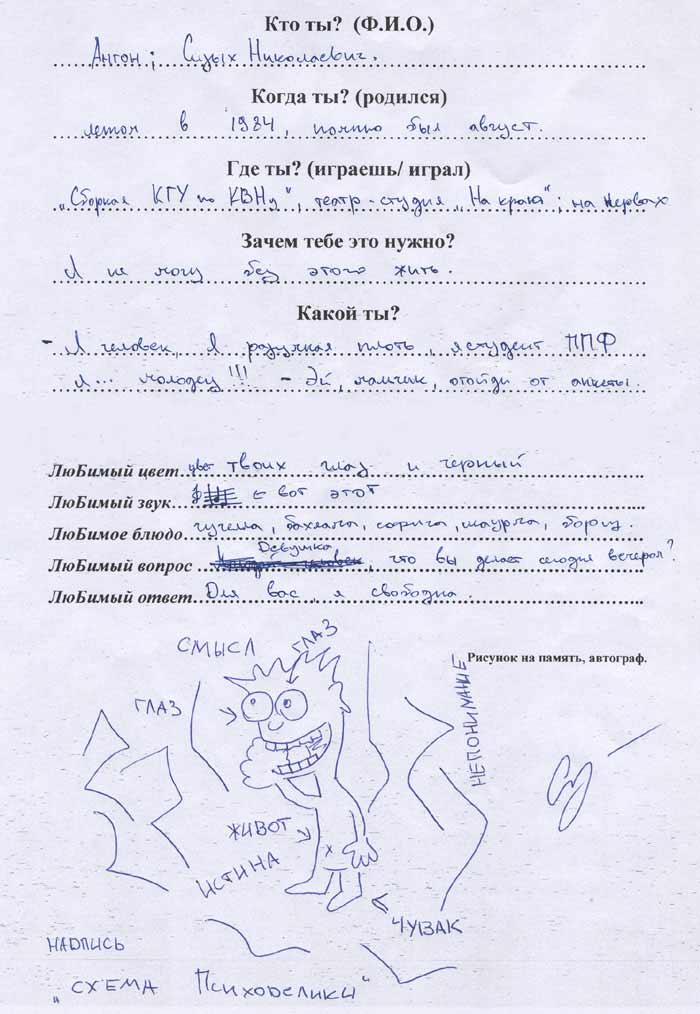 Кто ты? (Ф.И.О.)
Антон; Сизых Николаевич.
Когда ты? (родился)
летом в 1984, помню был август.
Где ты? (играешь/ играл)
„Сборная КГУ по КВНу", театр-студия „На краю"; на нервах
Зачем тебе это нужно?
Я не могу без этого жить.
Какой ты?
- Я человек, Я разумная плоть, я студент ППФ
я... молодец!!! - Эй, мальчик, отойди от анкеты.
ЛюБимый цвет цвет твоих глаз и черный
ЛюБимый звук ← вот этот
ЛюБимое блюдо чучема, бахлама, сорича, шаурма, борщ.
ЛюБимый вопрос Девушка, что вы делает сегодня вечером?
ЛюБимый ответ Для вас, я свободна.
Рисунок на память, автограф.
СМЫСЛ
ГЛАЗ
ГЛАЗ
НЕПОНИМАНИЕ
ЖИВОТ
ИСТИНА
ЧУВАК
НАДПИСЬ
„СХЕМА Психоделики"